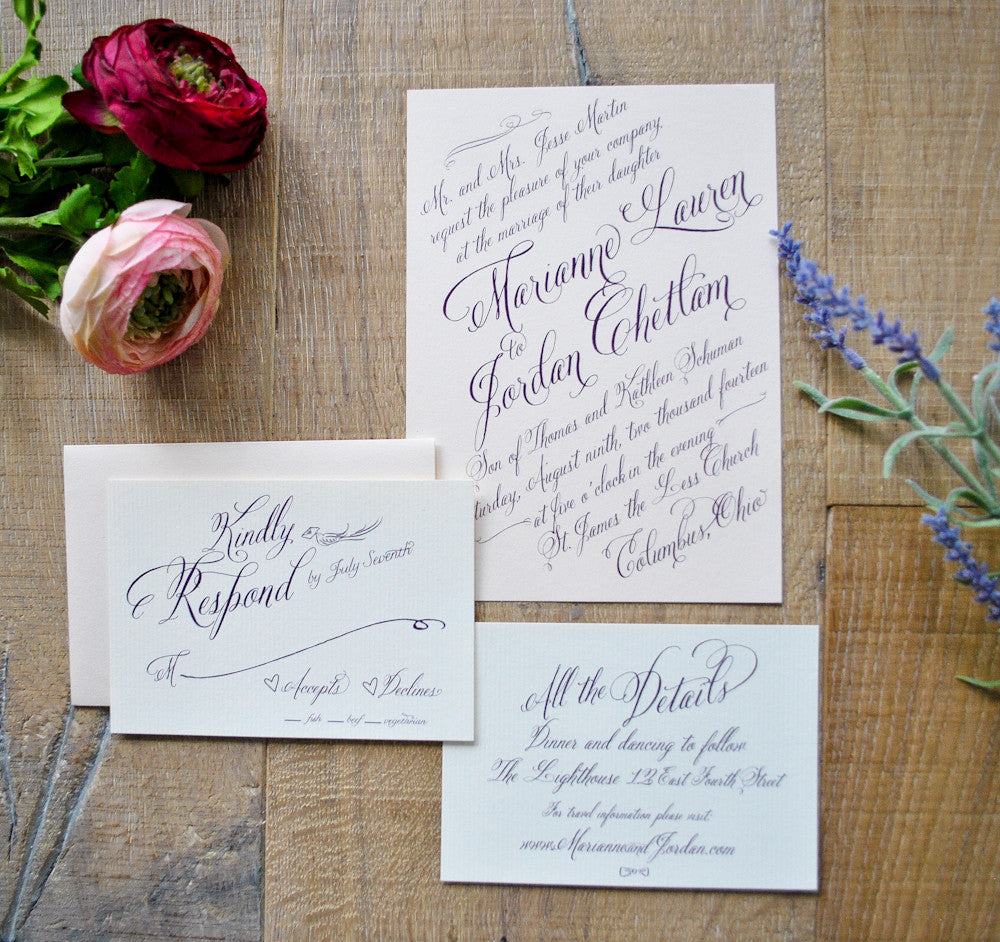 Mr. and Mrs. Jesse Martin
request the pleasure of your company
at the marriage of their daughter
Marianne Lauren
to
Jordan Chetlam
Son of Thomas and Kathleen Schuman
turday, August ninth, two thousand fourteen
at five o'clock in the evening
St. James the Less Church
Columbus, Ohio
Kindly
Respond by July Seventh
M
Accepts Declines
fish beef vegetarian
All the Details
Dinner and dancing to follow
The Lighthouse 12 East Fourth Street
For travel information please visit:
www.MarianneandJordan.com